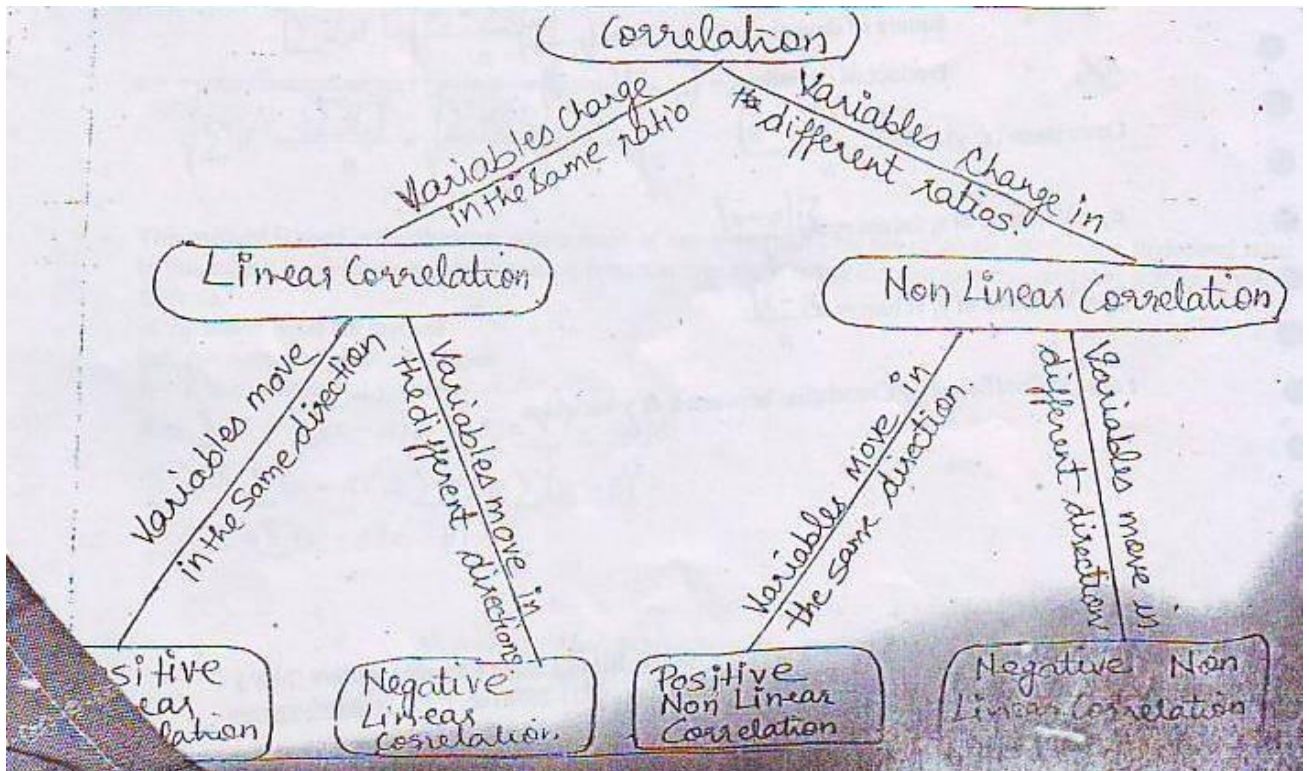 Correlation
Variables change
in the same ratio
Variables change in
the different ratios.
Linear Correlation
Non Linear Correlation
Variables move
in the same direction
Variables move in
the different directions
Variables move in
the same direction
Variables move in
different direction
sitive
ear
lation
Negative
Linear
Correlation.
Positive
Non Linear
Correlation
Negative Non
Linear Correlation